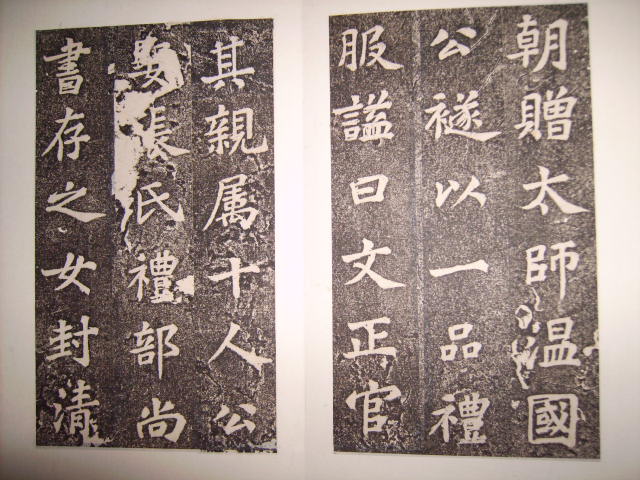 朝贈太師温國
公襚以一品禮
服謚曰文正官
其親属十人公
娶張氏禮部尚
書存之女封清